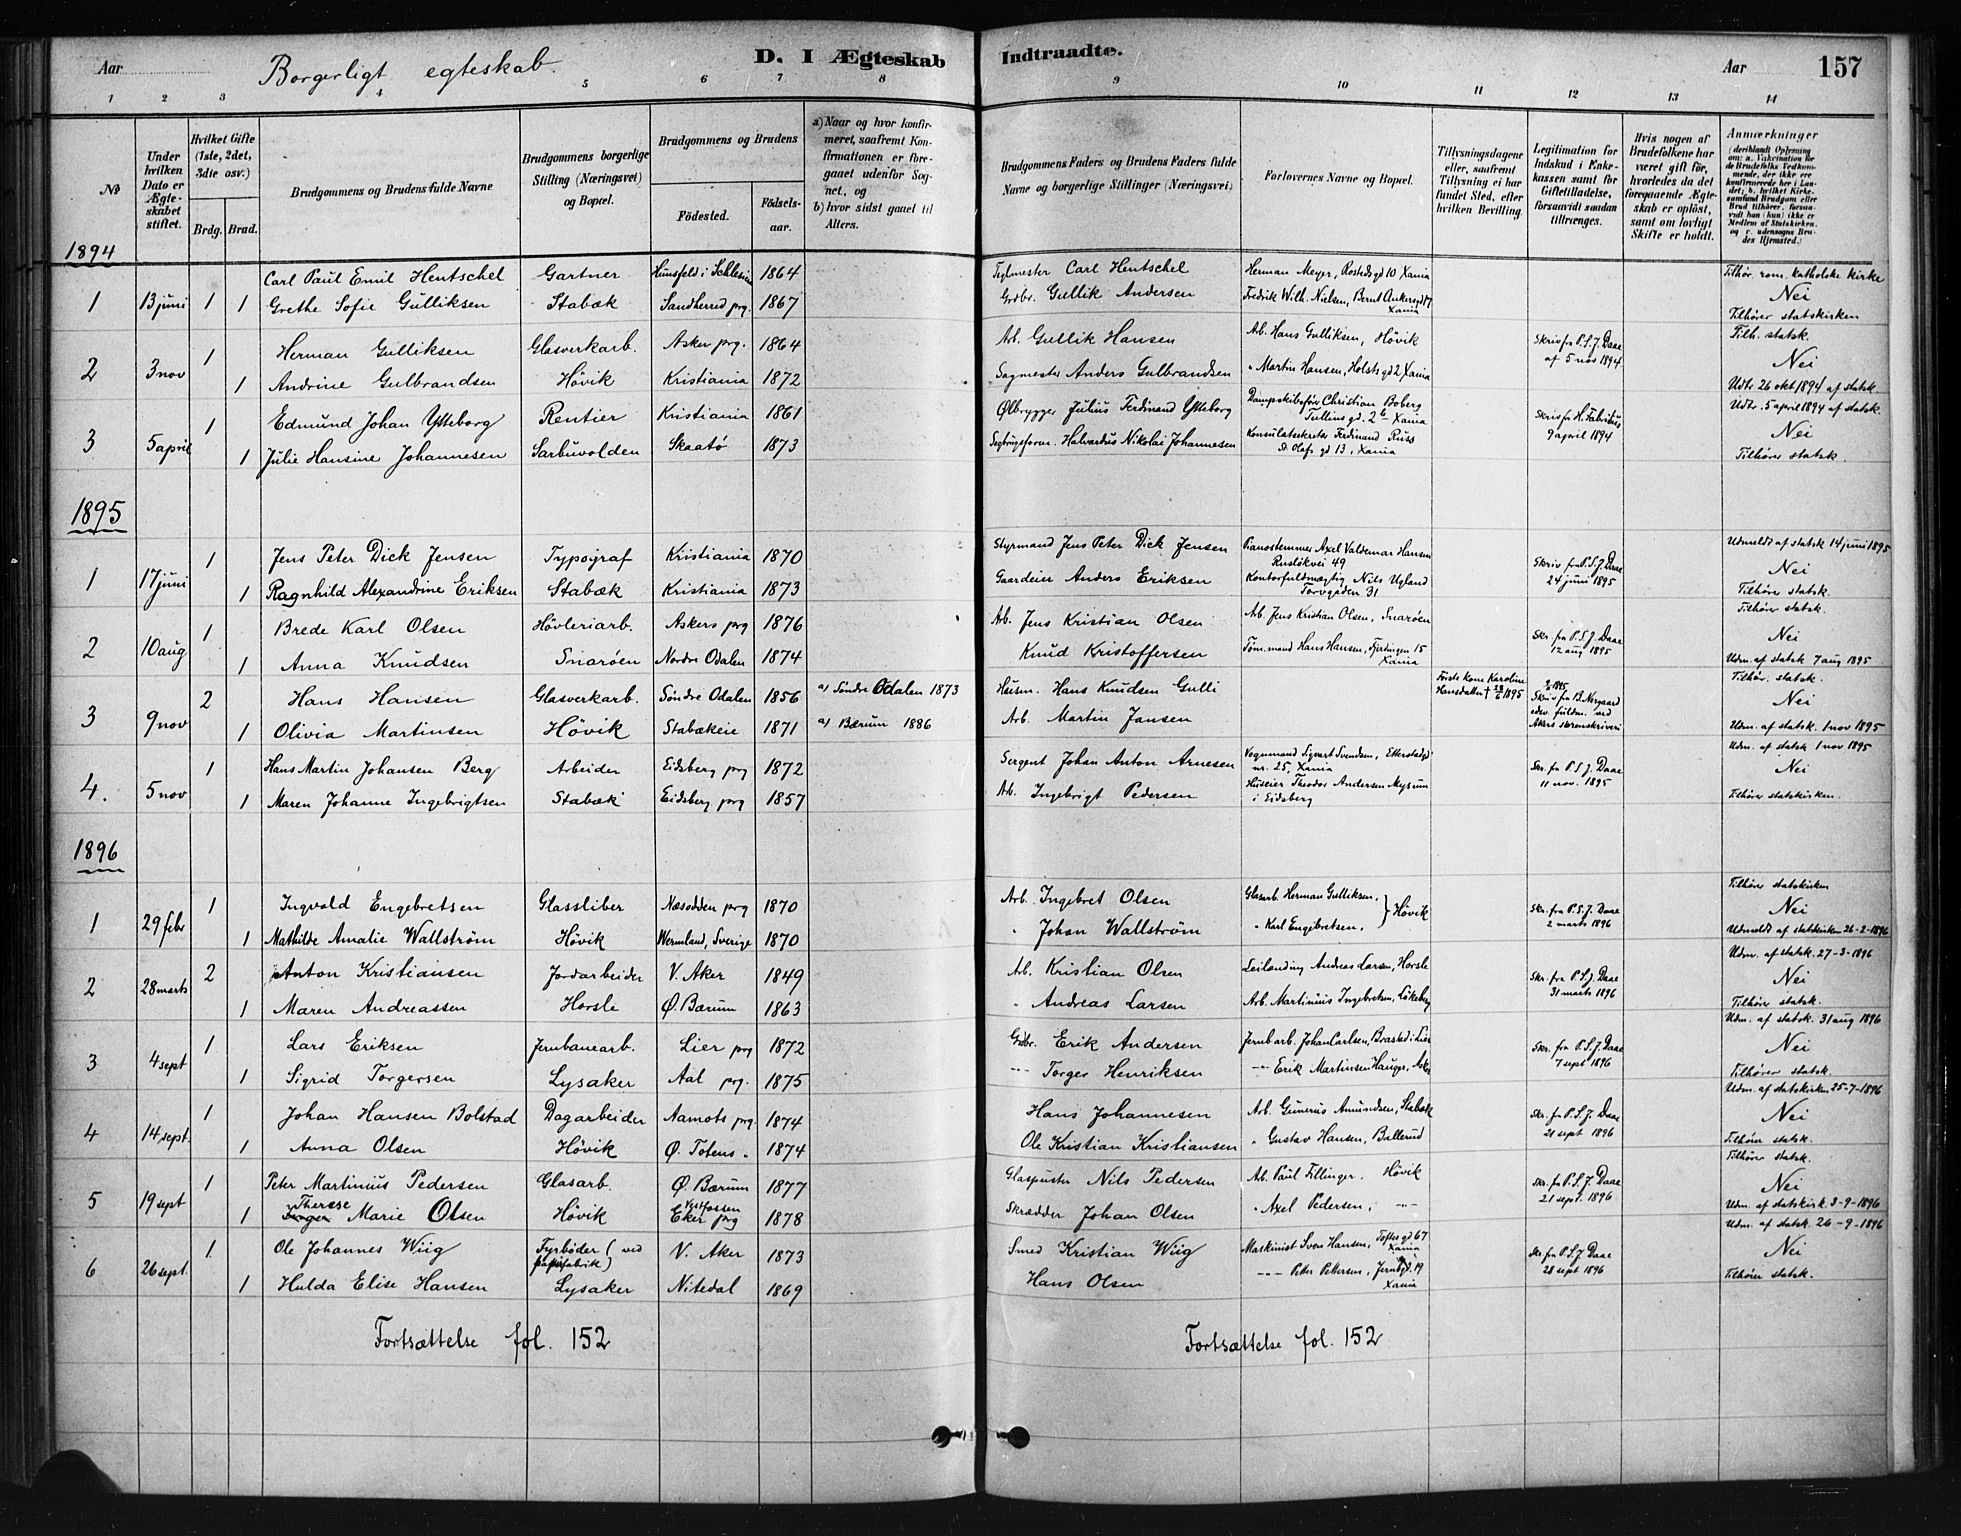 Aar
Borgerligt egteskab.
D. I Ægteskab
Indtraadte.
Aar
157
1 2 3 4 5 6 7 8 9 10 11 12 13 14
No
Under hvilken Dato er Ægteskabet stiftet.
Hvilket Gifte (1ste, 2det, 3die osv.)
Brdg. Brud.
Brudgommens og Brudens fulde Navne
Brudgommens borgerlige Stilling (Næringsvei) og Bopæl.
Brudgommens og Brudens
Födested.
Födselsaar.
a) Naar og hvor konfirmeret, saafremt Konfirmationen er foregaaet udenfor Sognet, og
b) hvor sidst gaaet til Alters.
Brudgommens Faders og Brudens Faders fulde Navne og borgerlige Stillinger (Næringsvei)
Forlovernes Navne og Bopæl.
Tillysningsdagene eller, saafremt Tillysning ei har fundet Sted, efter hvilken Bevilling.
Legitimation for Indskud i Enkekassen samt for Giftetilladelse, forsaavidt saadan tiltrænges.
Hvis nogen af Brudefolkene har været gift før, hvorledes da det foregaaende Ægteskab er oplöst, samt om lovligt Skifte er holdt.
Anmærkninger (deriblandt Oplysning om: a. Vakcination for de Brudefolks Vedkommende, der ikke ere konfirmerede her i Landet; b. hvilket Kirkesamfund Brudgom eller Brud tilhörer, forsaavidt han (hun) ikke er Medlem af Statskirken, og c. udensogns Brudes Hjemsted.)
1894
Carl Paul Emil Hentschel Gartner Hunsfeld i Schlesien 1864 Teglmester Carl Hentschel Herman Meyer, Rostedsgd 10 Xania Tilhør. rom. katholske kirke
1 13 juni 1 1 Grethe Sofie Gulliksen Stabæk Sandherred prg. 1867 Grdbr. Gullik Andersen Fredrik Wilh. Nielsen, Bernt Ankersgd 17 Xania Nei
Tilhører statskirken
1 Herman Gulliksen Glasverkarb. Asker prg. 1864 Arb. Gullik Hansen Arb. Hans Gulliksen, Høvik Skriv fra P.S.J. Daae af 5 nov 1894 Tilh. statsk.
2 3 nov Nei
1 Andrine Gulbrandsen Høvik Kristiania 1872 Sagmester Anders Gulbrandsen " Martin Hansen, Holsts gd 2, Xania Udtr. 26 okt 1894 af statsk.
1 Edmund Johan Ytteborg Rentier Kristiania 1861 Ølbrygger Julius Ferdinand Ytteborg Dampskibsfør Christian Boberg Tullins gd. 2 b Xania Skriv fra H. Fabritius 9 april 1894 Udtr. 5 april 1894 af statsk.
3 5 april Nei
1 Julie Hansine Johannesen Sarbuvolden Skaatø 1873 Halvardus Nikolai Johannesen Konsulatsekretær Ferdinand Russ St. Olafs gd 13, Xania Tilhører statsk.
1895
1 Jens Peter Dick Jensen Typograf Kristiania 1870 Styrmand Jens Peter Dick Jensen Pianostemmer Axel Valdemar Hansen Ruseløkvei 49 Skriv fra P.S.J. Daae 24 juni 1895 Udmeldt af statsk 14 juni 1895
1 17 juni Nei
1 Ragnhild Alexandrine Eriksen Stabæk Kristiania 1873 Gaardeier Anders Eriksen Kontorfuldmægtig Nils Ugland Torvgaden 31 Tilhører statsk.
1 Brede Karl Olsen Høvleriarb. Askers prg 1876 Arb. Jens Kristian Olsen Arb. Jens Kristian Olsen, Snarøen Skr. fra P.S.J. Daae 12 aug 1895 Tilhører statsk.
2 10 aug Nei
1 Anna Knudsen Snarøen Nordre Odalen 1874 Knud Kristoffersen Tømmermand Hans Hansen, Fjerdingen 15 Xania Udm. af statsk 7 aug 1895
2 Hans Hansen Glasverkarb. Søndre Odalen 1856 a) Søndre Odalen 1873 Husm. Hans Knudsen Gulli Karoline Hansdatter † 28/6 1895 Skriv fra B. Nergaard edsv. fuldm. ved Akers sorenskriveri Tilhør. statsk.
3 9 nov Nei
1 Olivia Martinsen Høvik Stabækeie 1871 a) Bærum 1886 Arb. Martin Jansen Udm. af statsk. 1 nov 1895
1 Hans Martin Johansen Berg Arbeider Eidsberg prg 1872 Sergent Johan Anton Arnesen Vognmand Sigvart Svendsen, Etterstadgd nr. 25, Xania Skr. fra P.S.J. Daae 11 nov. 1895 Udm. af statsk 1 nov 1895
4. 5 nov Nei
1 Maren Johanne Ingebrigtsen Stabæk Eidsberg prg 1857 Arb. Ingebrigt Pedersen Huseier Theodor Andersen Mysum i Eidsberg Tilhører statskirken.
1896
1 Ingvald Engebretsen Glassliber Næsodden prg 1870 Arb. Ingebret Olsen Glasarb. Herman Gulliksen, } Høvik Skr. fra P.S.J. Daae 2 marts 1896 Tilhører statskirken
1 29 febr Nei
1 Mathilde Amalie Wallstrøm Høvik Wermland, Sverige 1870 " Johan Wallstrøm " Karl Engebretsen, Udmeldt af statskirken 26-2-1896
2 Anton Kristiansen Jordarbeider V. Aker 1849 Arb. Kristian Olsen Leilænding Andreas Larsen, Horsle Skr. fra P.S.J. Daae 31 marts 1896 Udm. af statsk. 27-3-1896
2 28 marts Nei
1 Maren Andreassen Horsle Ø. Bærum 1863 " Andreas Larsen Arb. Martinius Ingebretsen, Løkeberg Tilhører statsk.
1 Lars Eriksen Jernbanearb. Lier prg 1872 Grdbr. Erik Andersen Jernb arb. Johan Carlsen, Brastad i Lier Skr. fra P.S.J. Daae 7 sept 1896 Udm. af statsk. 31 aug 1896
3 4 sept Nei
1 Sigrid Torgersen Lysaker Aal prg. 1875 -"- Torger Henriksen -"- Erik Martinsen Hauger, Asker Tilhører statsk.
1 Johan Hansen Bolstad Dagarbeider Aamots prg. 1874 Hans Johannesen Arb. Gunerus Amundsen, Stabæk Skr. fra P.S.J. Daae 21 sept 1896 Udm. af statskirken 25-7-1896
4 14 sept. Nei
1 Anna Olsen Høvik Ø. Totens " 1874 Ole Kristian Kristiansen " Gustav Hansen, Ballerud Tilhører statsk.
1 Peter Martinius Pedersen Glasarb. Ø. Bærum 1877 Glaspuster Nils Pedersen Arb. Paul Fillinger, Høvik Skr. fra P.S.J. Daae 21 sept. 1896 Tilhører statsk.
5 19 sept Nei
1 Inger Therese Marie Olsen Høvik Vestfossen Eker prg 1878 Skrædder Johan Olsen " Axel Pedersen, -"- Udm. af statskirk. 3-9-1896
1 Ole Johannes Wiig Fyrbøder (ved papirfabrik) V. Aker 1873 Smed Kristian Wiig Maskinist Sven Hansen, Toftes gd 67 Xania Skr fra P.S.J Daae 28 sept 1896 Udm. af statsk. 26-9-1896
6 26 sept. Nei
1 Hulda Elise Hansen Lysaker Nitedal 1869 Hans Olsen -"- Petter Pettersen, Jernbgd. 19 Xania Tilhører statsk.
Fortsættelse fol. 152
Fortsættelse fol. 152